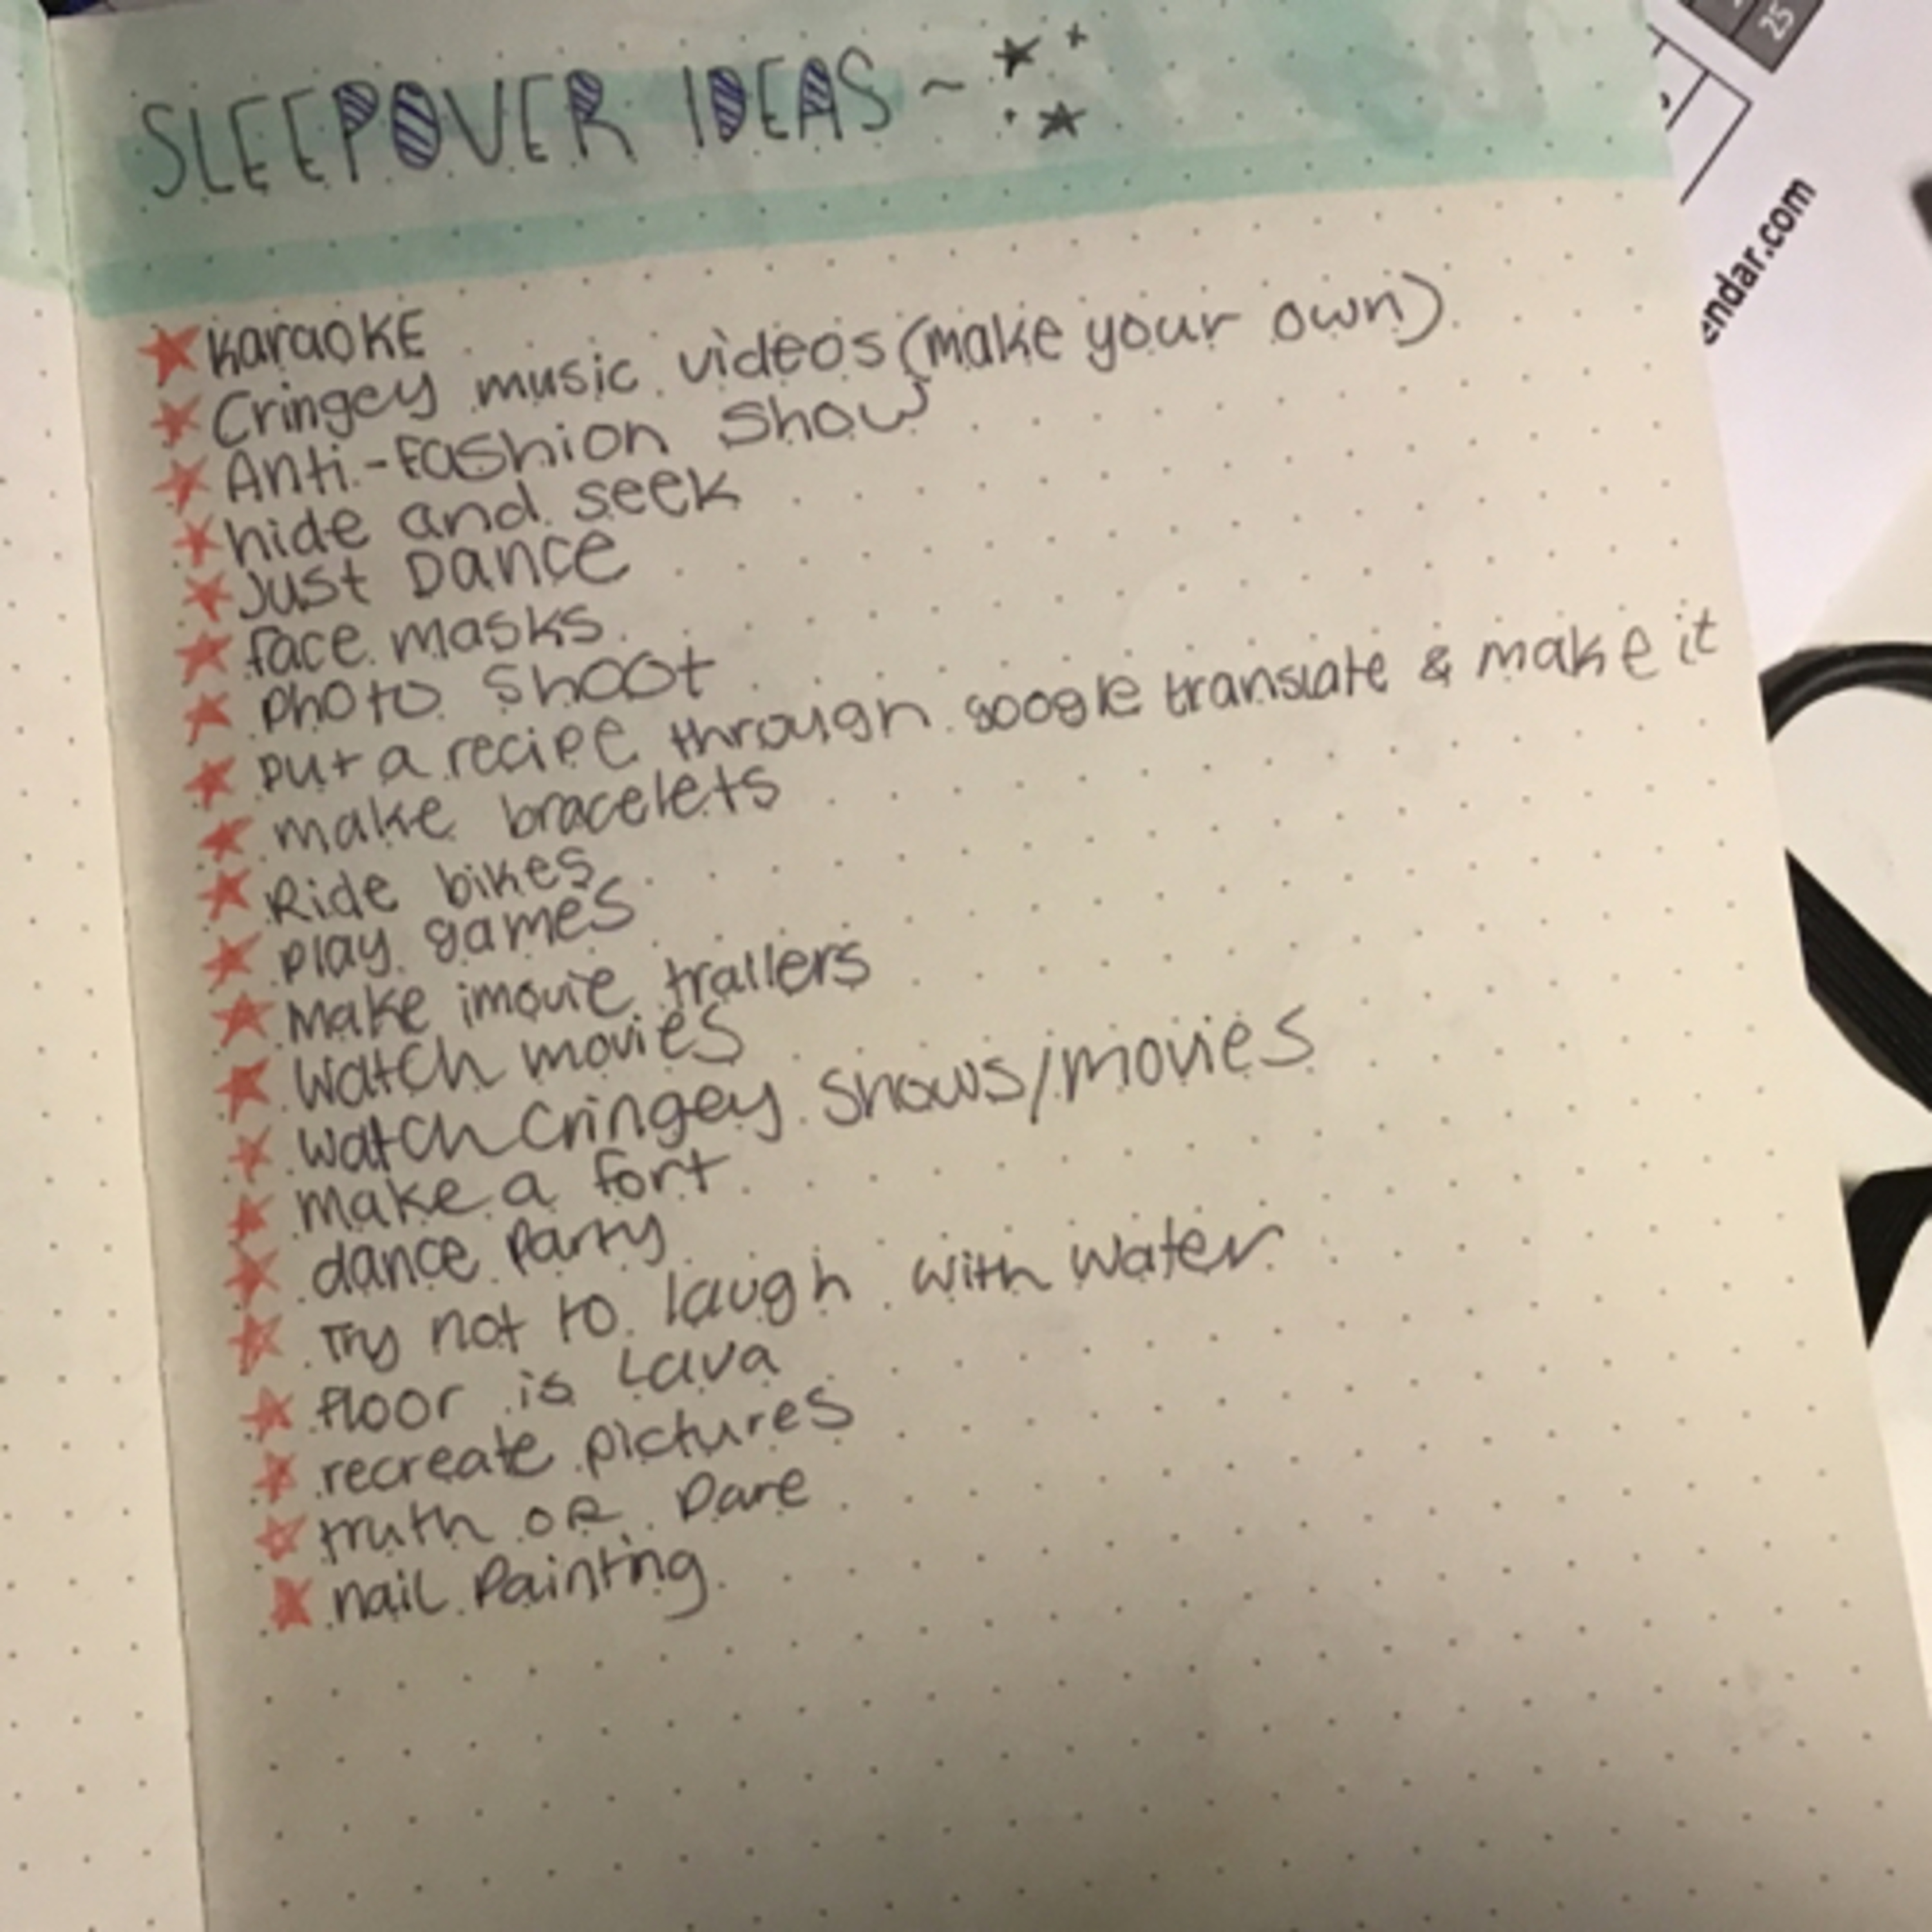 SLEEPOVER IDEAS ~
karaoKE
Cringey music videos (make your own)
Anti-Fashion Show
hide and seek
Just Dance
face masks
Photo Shoot
put a recipe through google translate & make it
make bracelets
Ride bikes
play games
Make imovie trailers
Watch movies
watch cringey shows/movies
make a fort
dance Party
Try not to laugh with water
floor is Lava
recreate pictures
truth OR Dare
nail Painting
25
endar.com